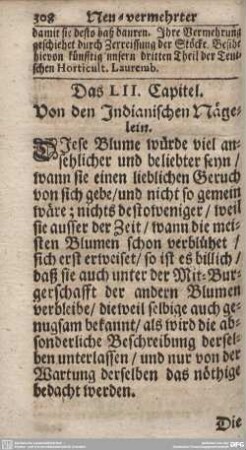 308 Neu-vermehrter
damit sie desto baß dauren. Ihre Vermehrung
geschiehet durch Zerreissung der Stöcke. Besiht
hievon künfftig unsern dritten Theil der Teut-
schen Horticult. Lauremb.
Das LII. Capitel.
Von den Indianischen Näge-
lein.
DIese Blume würde viel an-
sehlicher und beliebter seyn /
wann sie einen lieblichen Geruch
von sich gebe / und nicht so gemein
wäre; nichts destoweniger / weil
sie ausser der Zeit / wann die mei-
sten Blumen schon verblühet /
sich erst erweiset / so ist es billich /
daß sie auch unter der Mit-Bur-
gerschafft der andern Blumen
verbleibe / dieweil selbige auch ge-
nugsam bekannt / als wird die ab-
sonderliche Beschreibung dersel-
ben unterlassen / und nur von der
Wartung derselben das nöthige
bedacht werden.
Die